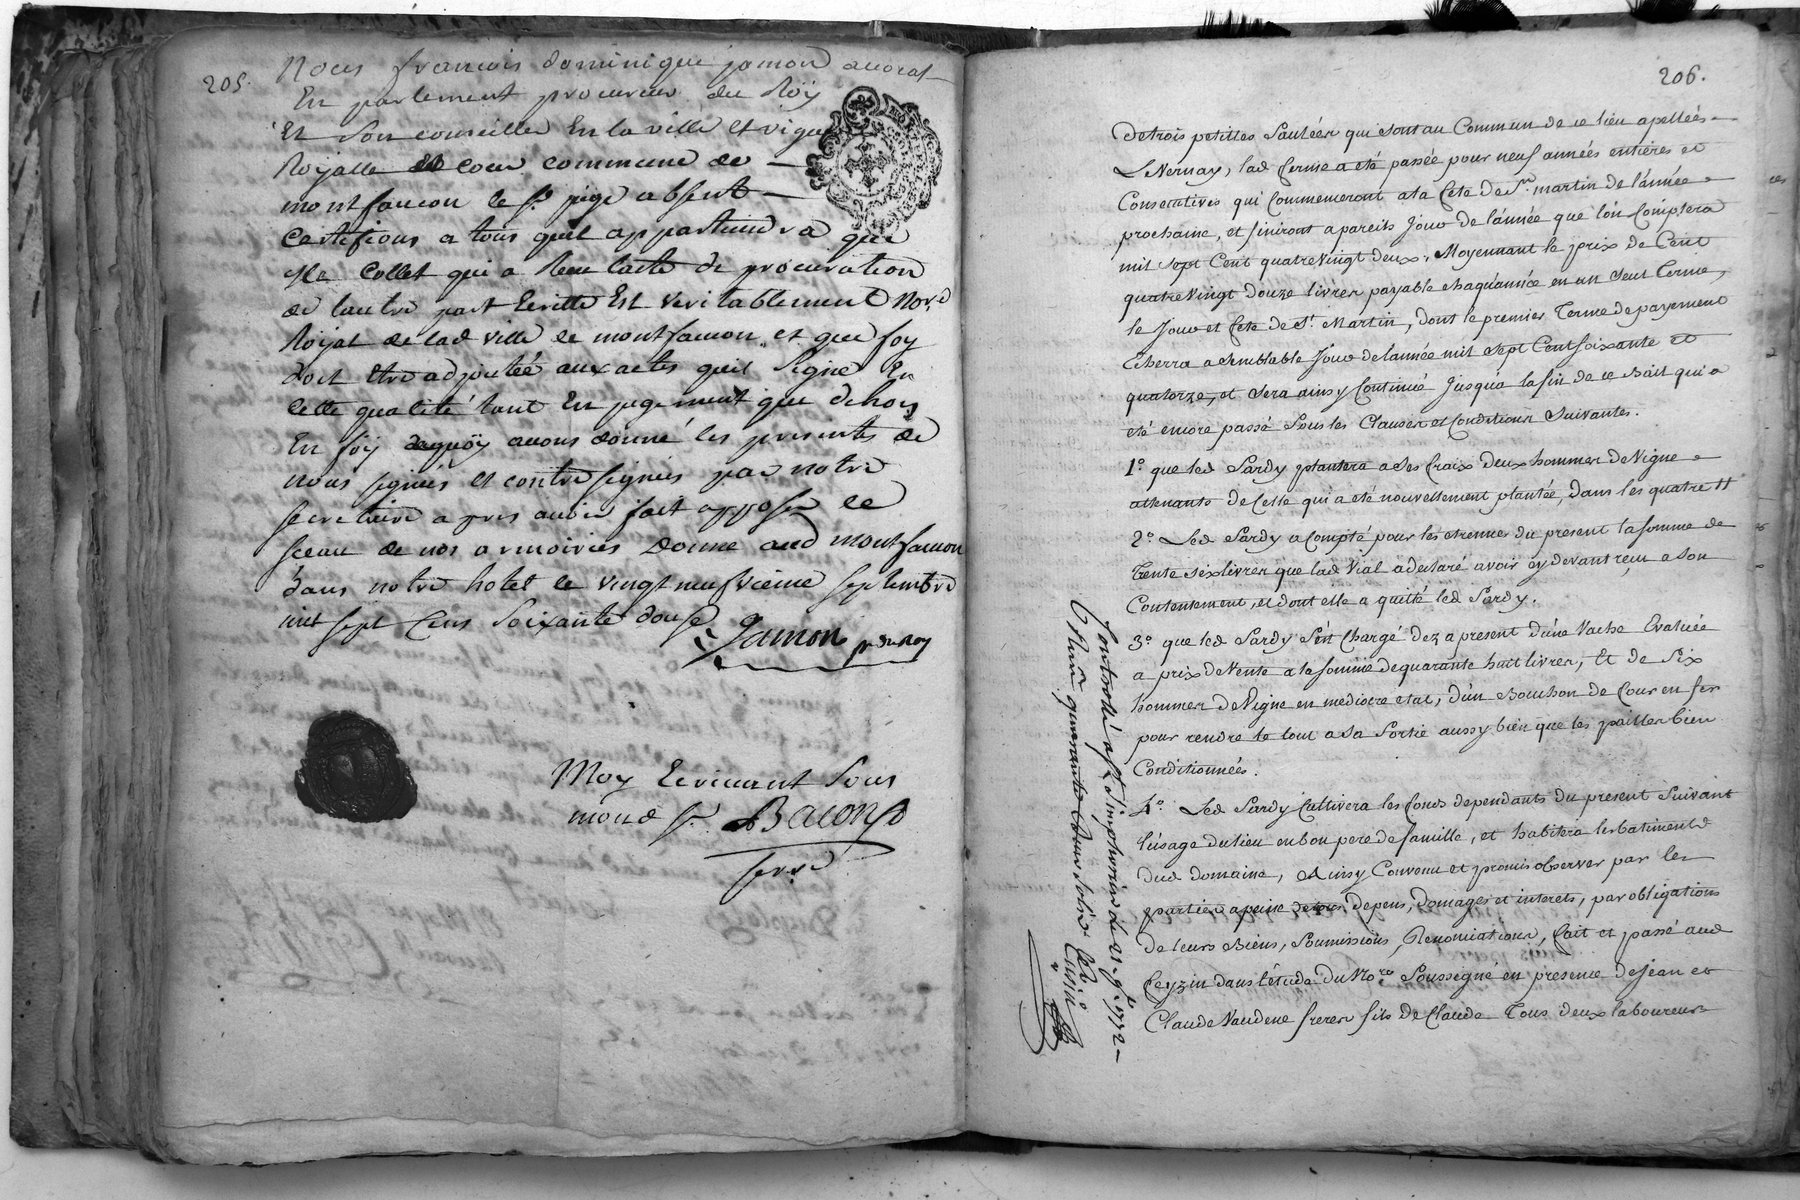 205.
Nous francois dominique jamon avocat
En parlement procureur du Roy
Et son conseiller En la ville et
Royalle cour commune de
montfaucon le sr. juge absent
Certifions a tous quil appartiendra que
Me Collet qui a Recu lacte de procuration
de lautre part Ecritte Est veritablement Nore
Royal de lad ville de montfaucon, et que foy
doit etre adjoutée aux actes quil signe En
cette qualité tant En jugement que dehors
En foy dequoy avons donné les presentes de
nous signées et contresignées par notre
secretaire apres avoir fait apposer le
sceau de nos armoiries Donné aud montfaucon
dans notre hotel le vingt neufvieme septembre
mil sept Cens Soixante douse
Jamon pr du Roy
Moy Ecrivant Sous
mond sr. Bacon
206.
de trois petittes Saulées qui sont au Commun de ce lieu apellées
L Nernay, lad ferme a été passée pour neuf années entieres et
Consecutives qui Commenceront a la fete de St. martin de l'année
prochaine, et finiront a pareils Jour de l'année que l'on Comptera
mil sept Cent quatre vingt deux, Moyennant le prix de Cent
quatre vingt douze livres payable chaqu'année en un seul Terme,
le Jour et fete de St. Martin, dont le premier Terme de payement
Echerra a semblable Jour de lannée mil sept Cent soixante et
quatorze, et sera ainsy Continué Jusqu'a la fin de ce Bail qui a
eté encore passé sous les Clauses et Conditions Suivantes.
1° que led Sardy plantera a ses fraix deux hommes de Vigne
attenants de Celle qui a eté nouvellement plantée, dans les quatre
2° Led Sardy a Compté pour les etrennes du present la somme de
Trente six livres que lad Vial a declaré avoir cy devant recu a son
Contentement, et dont elle a quitté led Sardy.
3° que led Sardy s'est Chargé dez a present d'une Vache Evaluée
a prix de Vente a la somme de quarante huit livres, Et de Six
hommes de Vigne en mediocre etat, d'un Bouchon de Cour en fer
pour rendre le tout a sa Sortie aussy bien que les pailles bien
Conditionnées.
4° Led Sardy Cultivera les fonds dependants du present Suivant
l'usage du lieu en bon pere de famille, et habitera les batiments
dud domaine, Ainsy Convenu et promis observer par les
parties a peine de tous depens, domages et interets, par obligations
de leurs Biens, Soumissions, Renonciations, fait et passé aud
feyzin dans l'etude du Nore Soussigné en presence de Jean et
Claude Vaudene freres fils de Claude Tous deux laboureurs